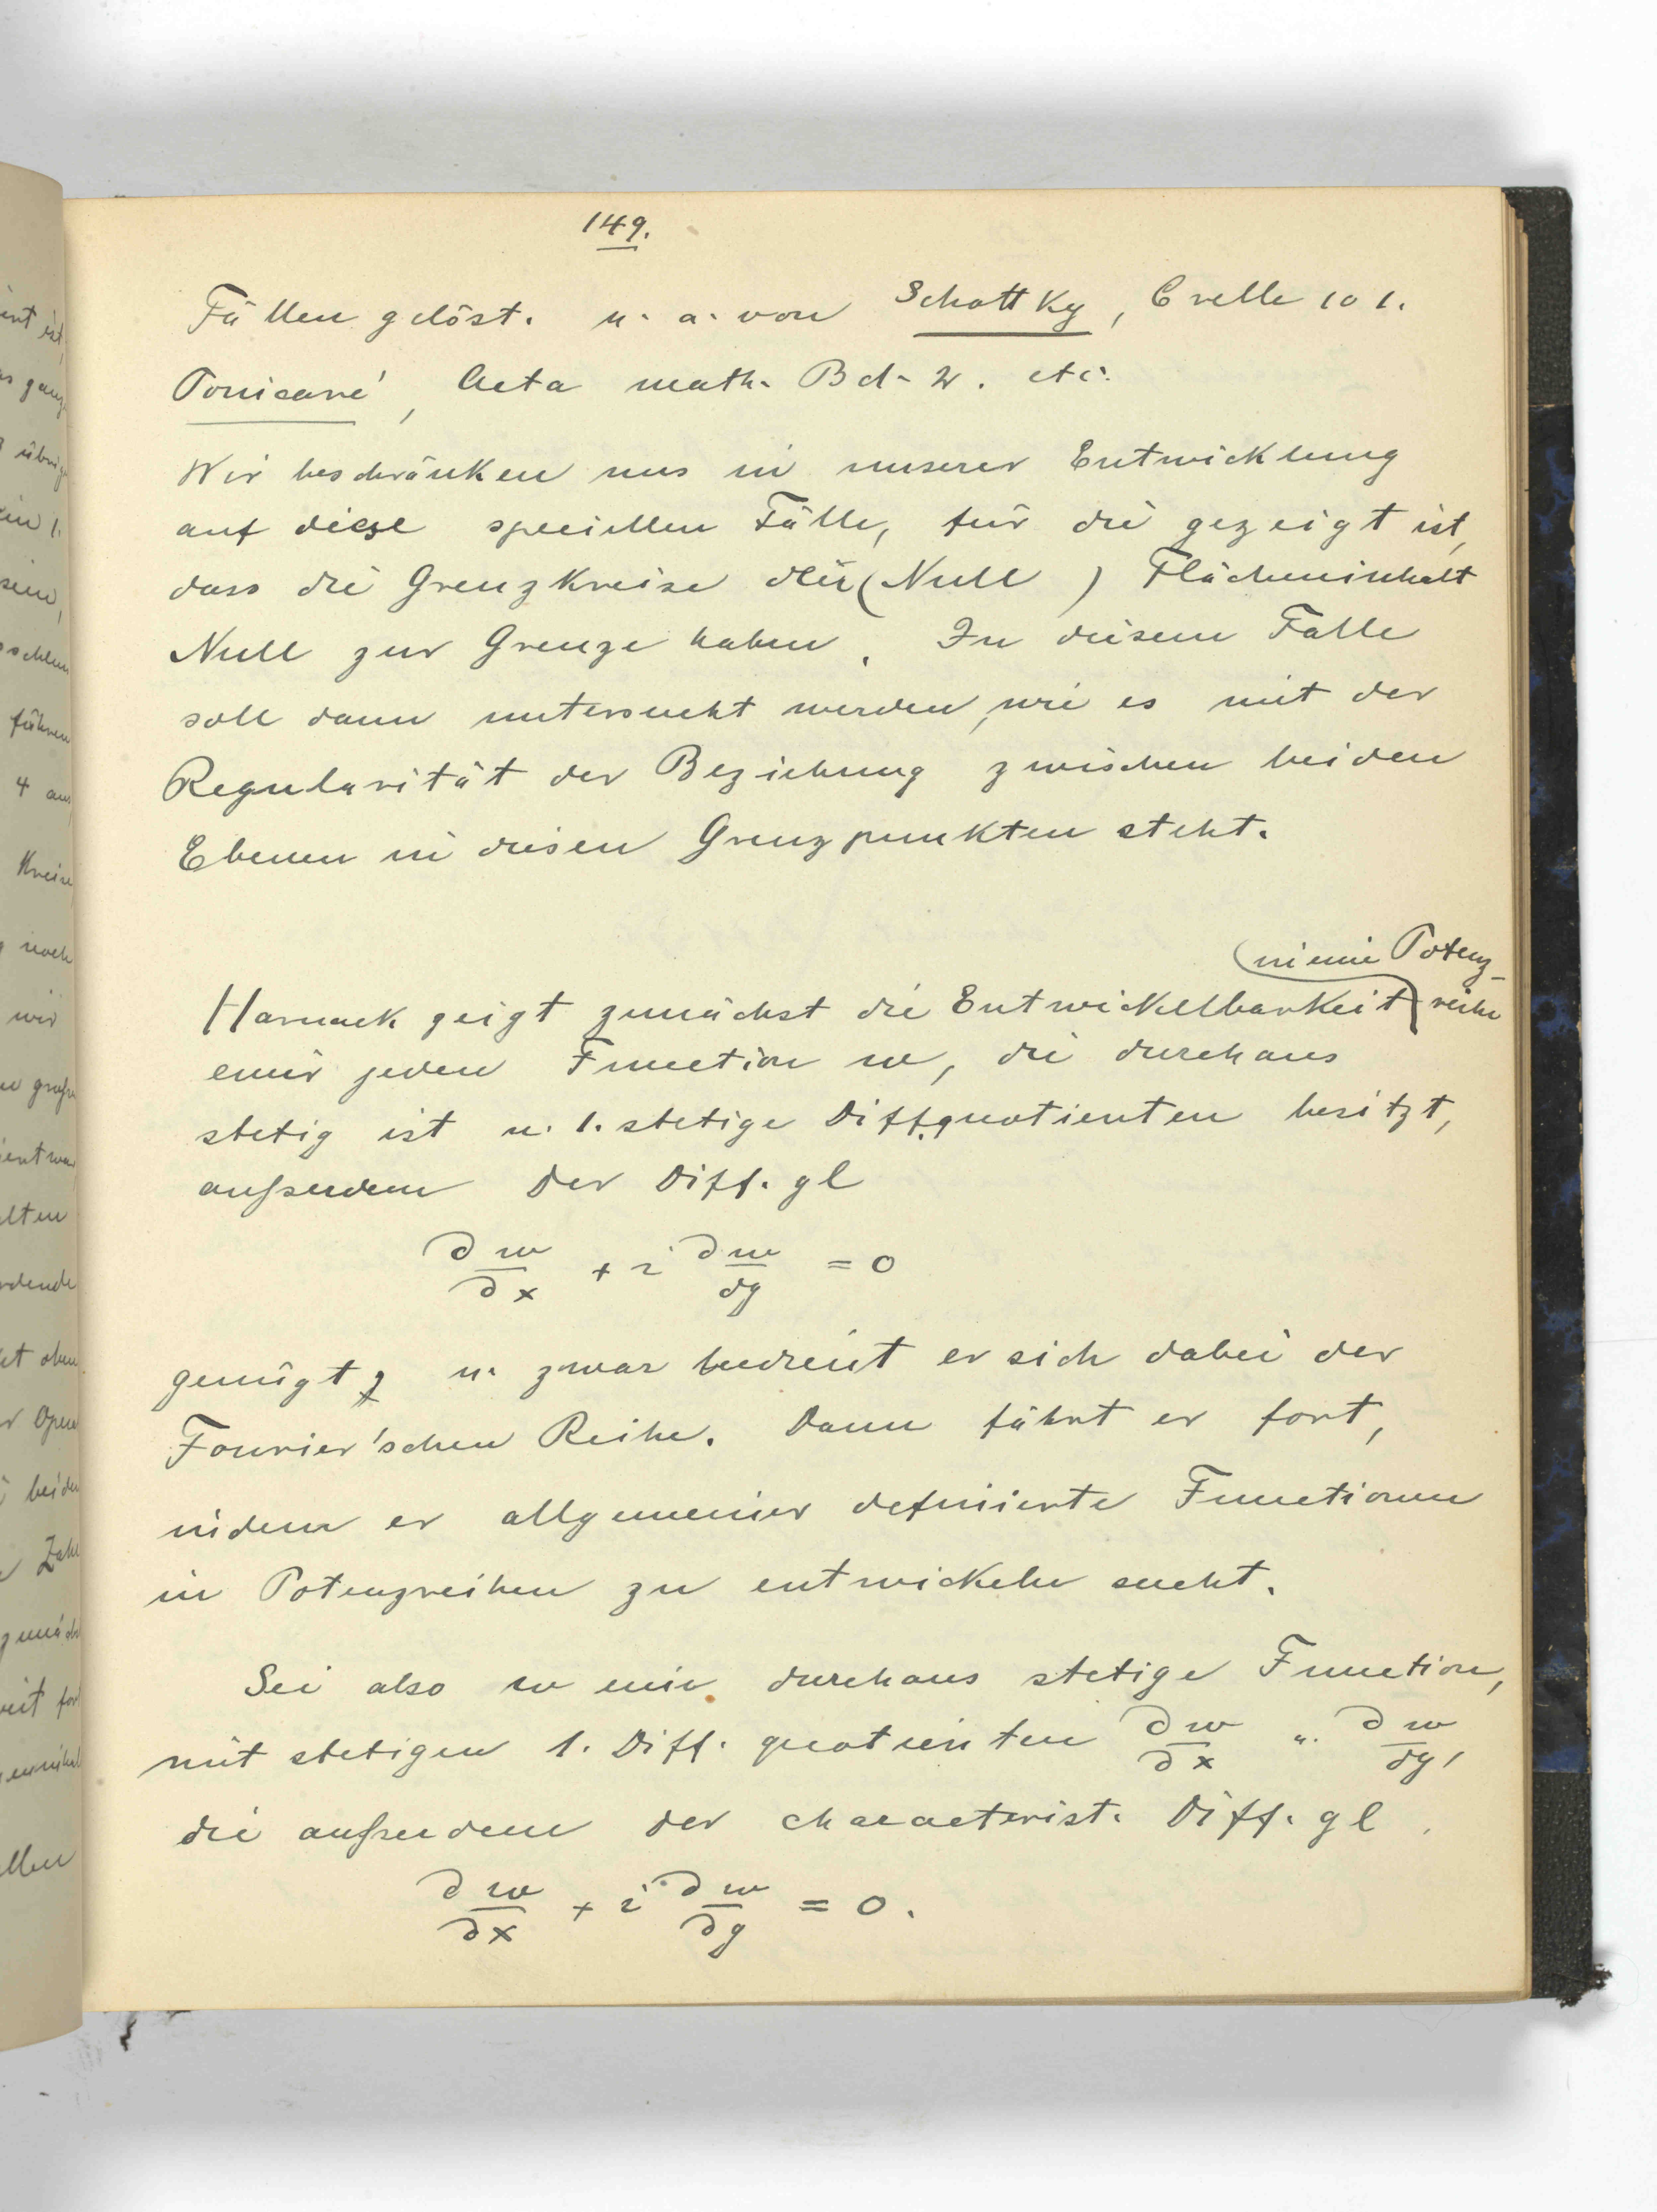 149.
Fällen gelöst. u. a. von Schottky, Crelle 101.
Poincaré, Acta math. Bd. 2. etc.
Wir beschränken uns in unserer Entwicklung
auf diese speciellen Fälle, für die gezeigt ist,
dass die Grenzkreise den (Null ) Flächeninhalt
Null zur Grenze haben. In diesem Falle
soll dann untersucht werden, wie es mit der
Regularität der Beziehung zwischen beiden
Ebenen in diesen Grenzpunkten steht.
(in eine Potenz-
Harnack zeigt zunächst die Entwickelbarkeit) reihe
einer jeden Function w, die durchaus
stetig ist u. 1. stetige Diff.quotienten besitzt,
außerdem der Diff. gl
∂w/∂x + i ∂w/∂y = 0
genügt, u. zwar bedient er sich dabei der
Fourier'schen Reihe. Dann fährt er fort,
indem er allgemeiner definierte Functionen
in Potenzreihen zu entwickeln sucht.
Sei also w eine durchaus stetige Function,
mit stetigen 1. Diff. quotienten ∂w/∂x u. ∂w/∂y,
die außerdem der characterist. Diff. gl.
∂w/∂x + i ∂w/∂y = 0.